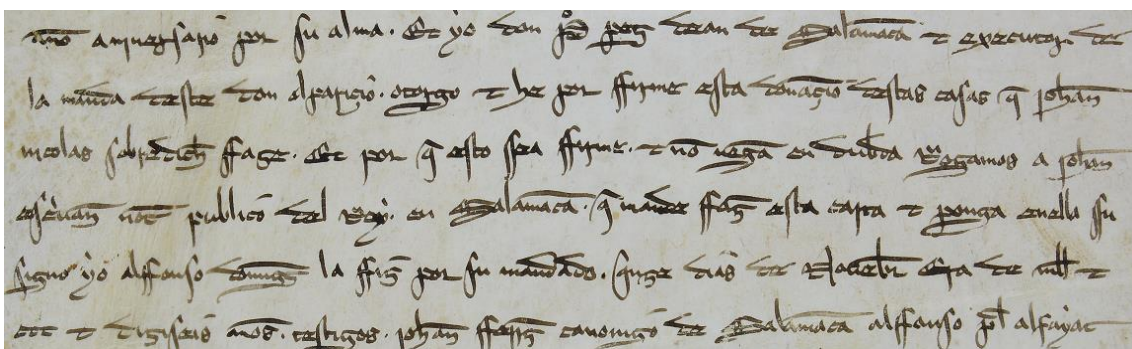 anniuersario por su alma. Et yo don pᵒ pez dean de Salamāca τ executor de
la manda deste don alparicio. otorgo τ he por ffirme esta donaçiō destas casas q̄ johan
nicolas sobredich̄o ffaze. Et por q̄ esto ssea ffirme. τ nō uēga en dubda Rogamos a johan
esteuan not̄ publico del Rey. en Salamāca. q̄ mande ffaz̄ esta carta τ ponga en ella su
signo yo alffonso dominḡ la ffiz̄ por su mandado. q̄nze dias de Nouēbr̄ Era de mill τ
ccc τ diziseis annos. testigos. johan fferrz̄ canonigo de Salamāca alffonso p̄l alfayat